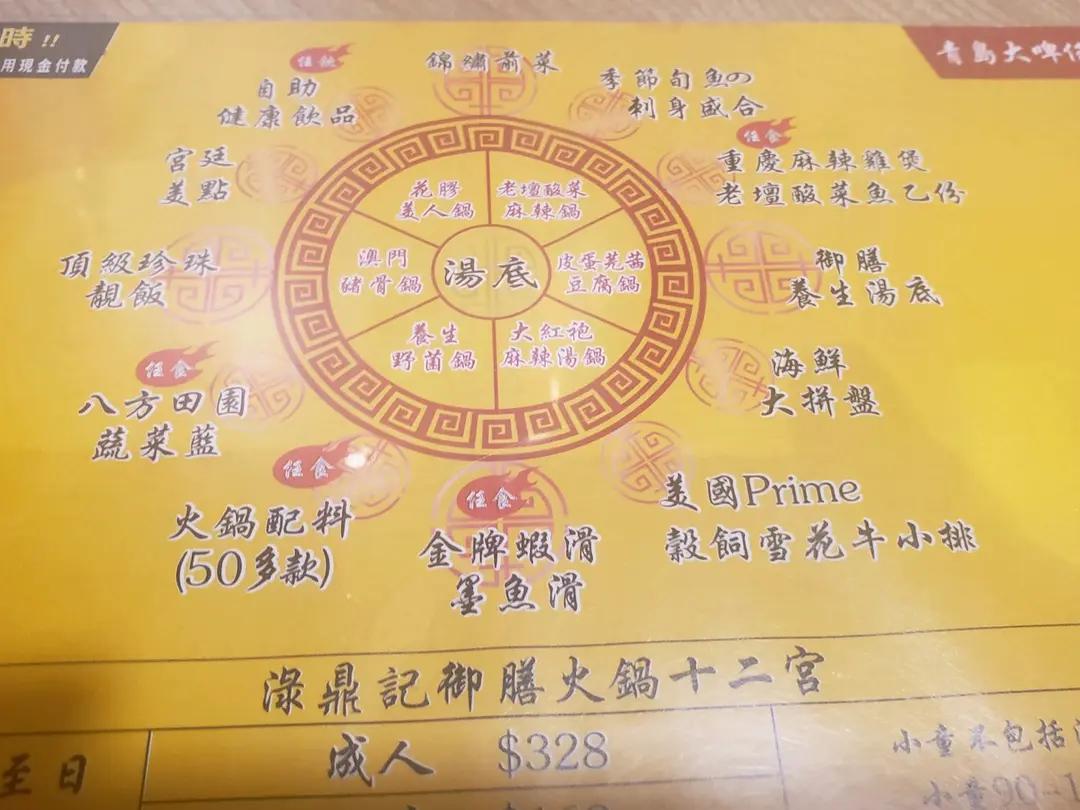 時!!
用現金付款
青島大啤
任飲
自助
健康飲品
錦繡前菜
季節旬魚の
刺身盛合
宮廷
美點
任食
重慶麻辣雞煲
老壇酸菜魚乙份
頂級珍珠
靚飯
御膳
養生湯底
花膠
美人鍋
老壇酸菜
麻辣鍋
澳門
豬骨鍋
湯底
皮蛋芫茜
豆腐鍋
養生
野菌鍋
大紅袍
麻辣湯鍋
任食
八方田園
蔬菜藍
海鮮
大拼盤
任食
火鍋配料
(50多款)
任食
金牌蝦滑
墨魚滑
美國Prime
穀飼雪花牛小排
淥鼎記御膳火鍋十二宮
至日
成人 $328
小童不包括
小童90-1